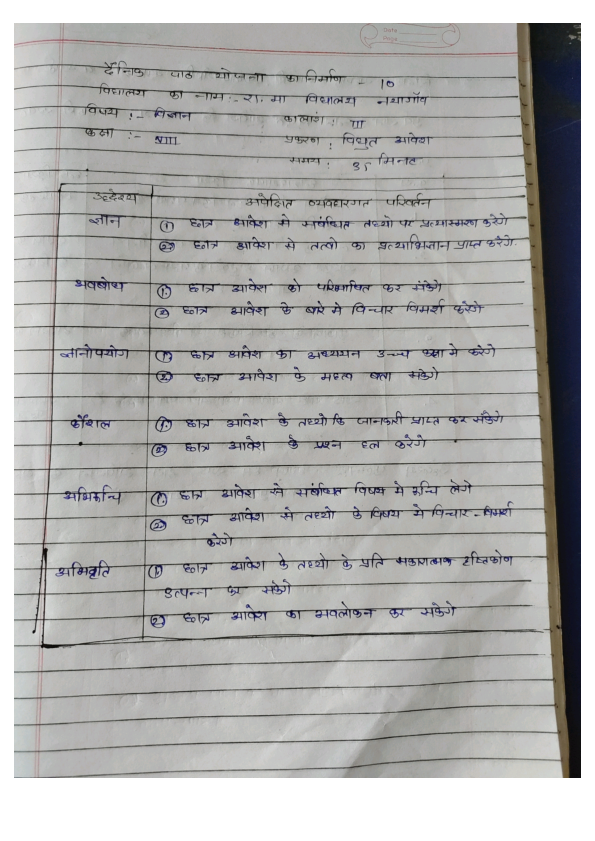 Date
Page
दैनिक पाठ योजना का निर्माण - 10
विद्यालय का नाम:- रा. मा विद्यालय नयागाँव
विषय :- विज्ञान कालांश : III
कक्षा :- VIII प्रकरण : विधुत आवेश
समय : 35 मिनट
उद्देश्य अपेक्षित व्यवहारगत परिवर्तन
ज्ञान (1) छात्र आवेश से सबंधित तथ्यो का प्रत्यास्मरण करेंगे
(2) छात्र आवेश से तत्वो का प्रत्याभिज्ञान प्राप्त करेंगे.
अवबोध (1) छात्र आवेश को परिभाषित कर सकेंगे
(2) छात्र आवेश के बारे मे विचार विमर्श करेंगे
ज्ञानोपयोग (1) छात्र आवेश का अध्ययन उच्च कक्षा मे करेंगे
(2) छात्र आवेश के महत्व बता सकेंगे
कौशल (1) छात्र आवेश के तथ्यो कि जानकारी प्राप्त कर सकेंगे
(2) छात्र आवेश के प्रश्न हल करेंगे
अभिरूचि (1) छात्र आवेश से सबंधित विषय मे रूचि लेंगे
(2) छात्र आवेश से तथ्यो के विषय मे विचार - विमर्श
करेंगे
अभिवृति (1) छात्र आवेश के तथ्यो के प्रति सकारात्मक दृष्टिकोण
उत्पन्न कर सकेंगे
(2) छात्र आवेश का अवलोकन कर सकेंगे